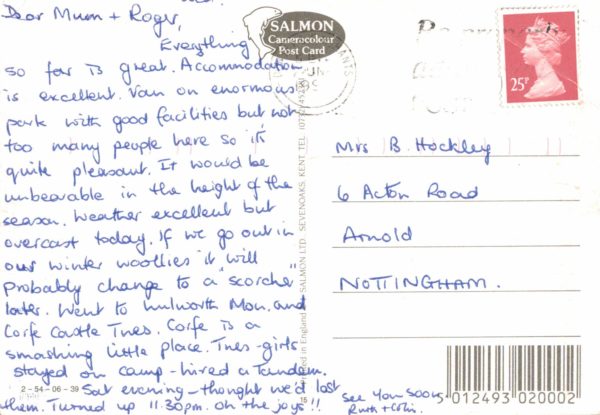 Dear Mum + Roger,
Everything
so far is great. Accommodation
is excellent. Van on enormous
park with good facilities but not
too many people here so it's
quite pleasant. It would be
unbearable in the height of the
season. Weather excellent but
overcast today. If we go out in
our winter woollies it will
probably change to a "scorcher"
later. Went to Lulworth Mon. and
Corfe Castle Tues. Corfe is a
smashing little place. Tues - girls
stayed on camp - hired a Tandem.
Sat evening - thought we'd lost
them. Turned up 11.30pm. Oh the joys!!
See you soon
Ruth + Colin.
SALMON
Cameracolour
Post Card
25P
Mrs B. Hockley
6 Acton Road
Arnold
NOTTINGHAM.
Printed in England © J SALMON LTD. SEVENOAKS. KENT. TEL
2-54-06-39
15
012493 020002